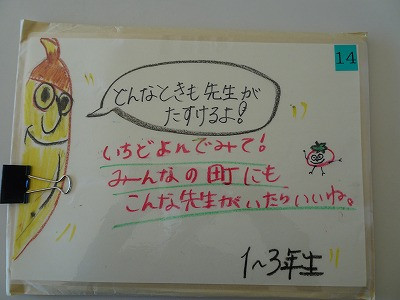 14
どんなときも先生が
たすけるよ!
いちどよんでみて!
みーんなの町にも
こんな先生がいたらいいね。
1~3年生